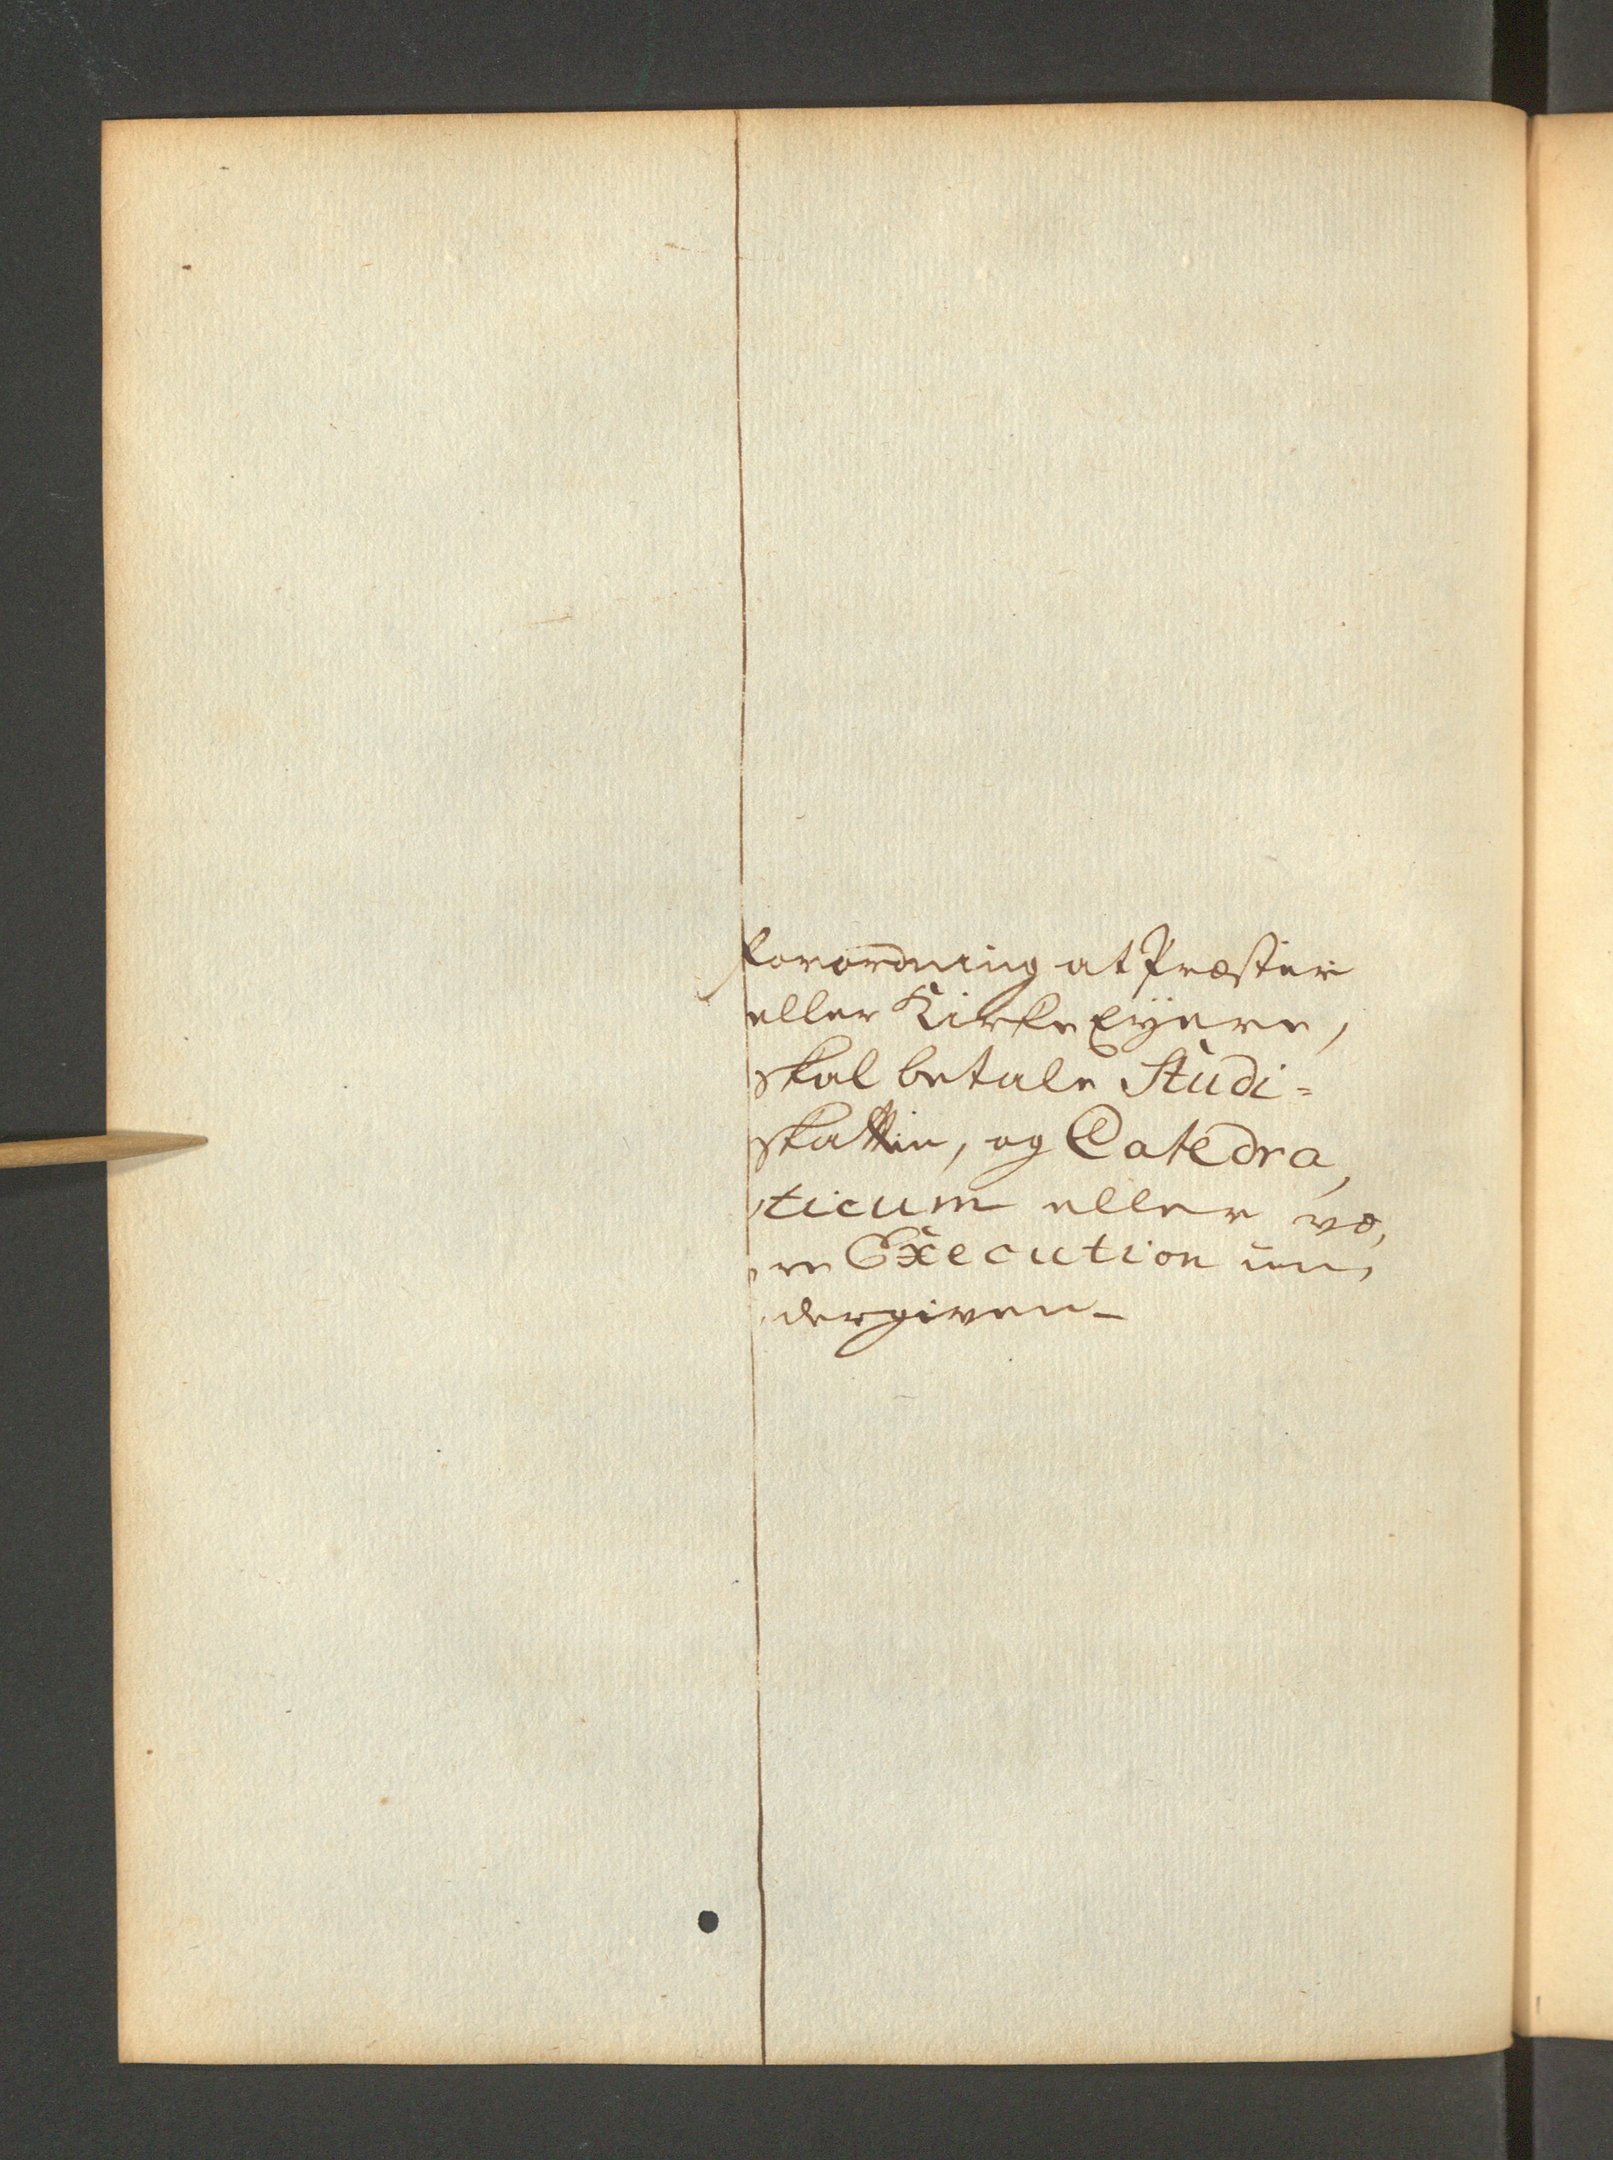 forordning at Præster
eller Kirke Eyere,
skal betale Studi=
skatten, og Catedra,
ticum eller væ,
re Execution un,
dergiven_